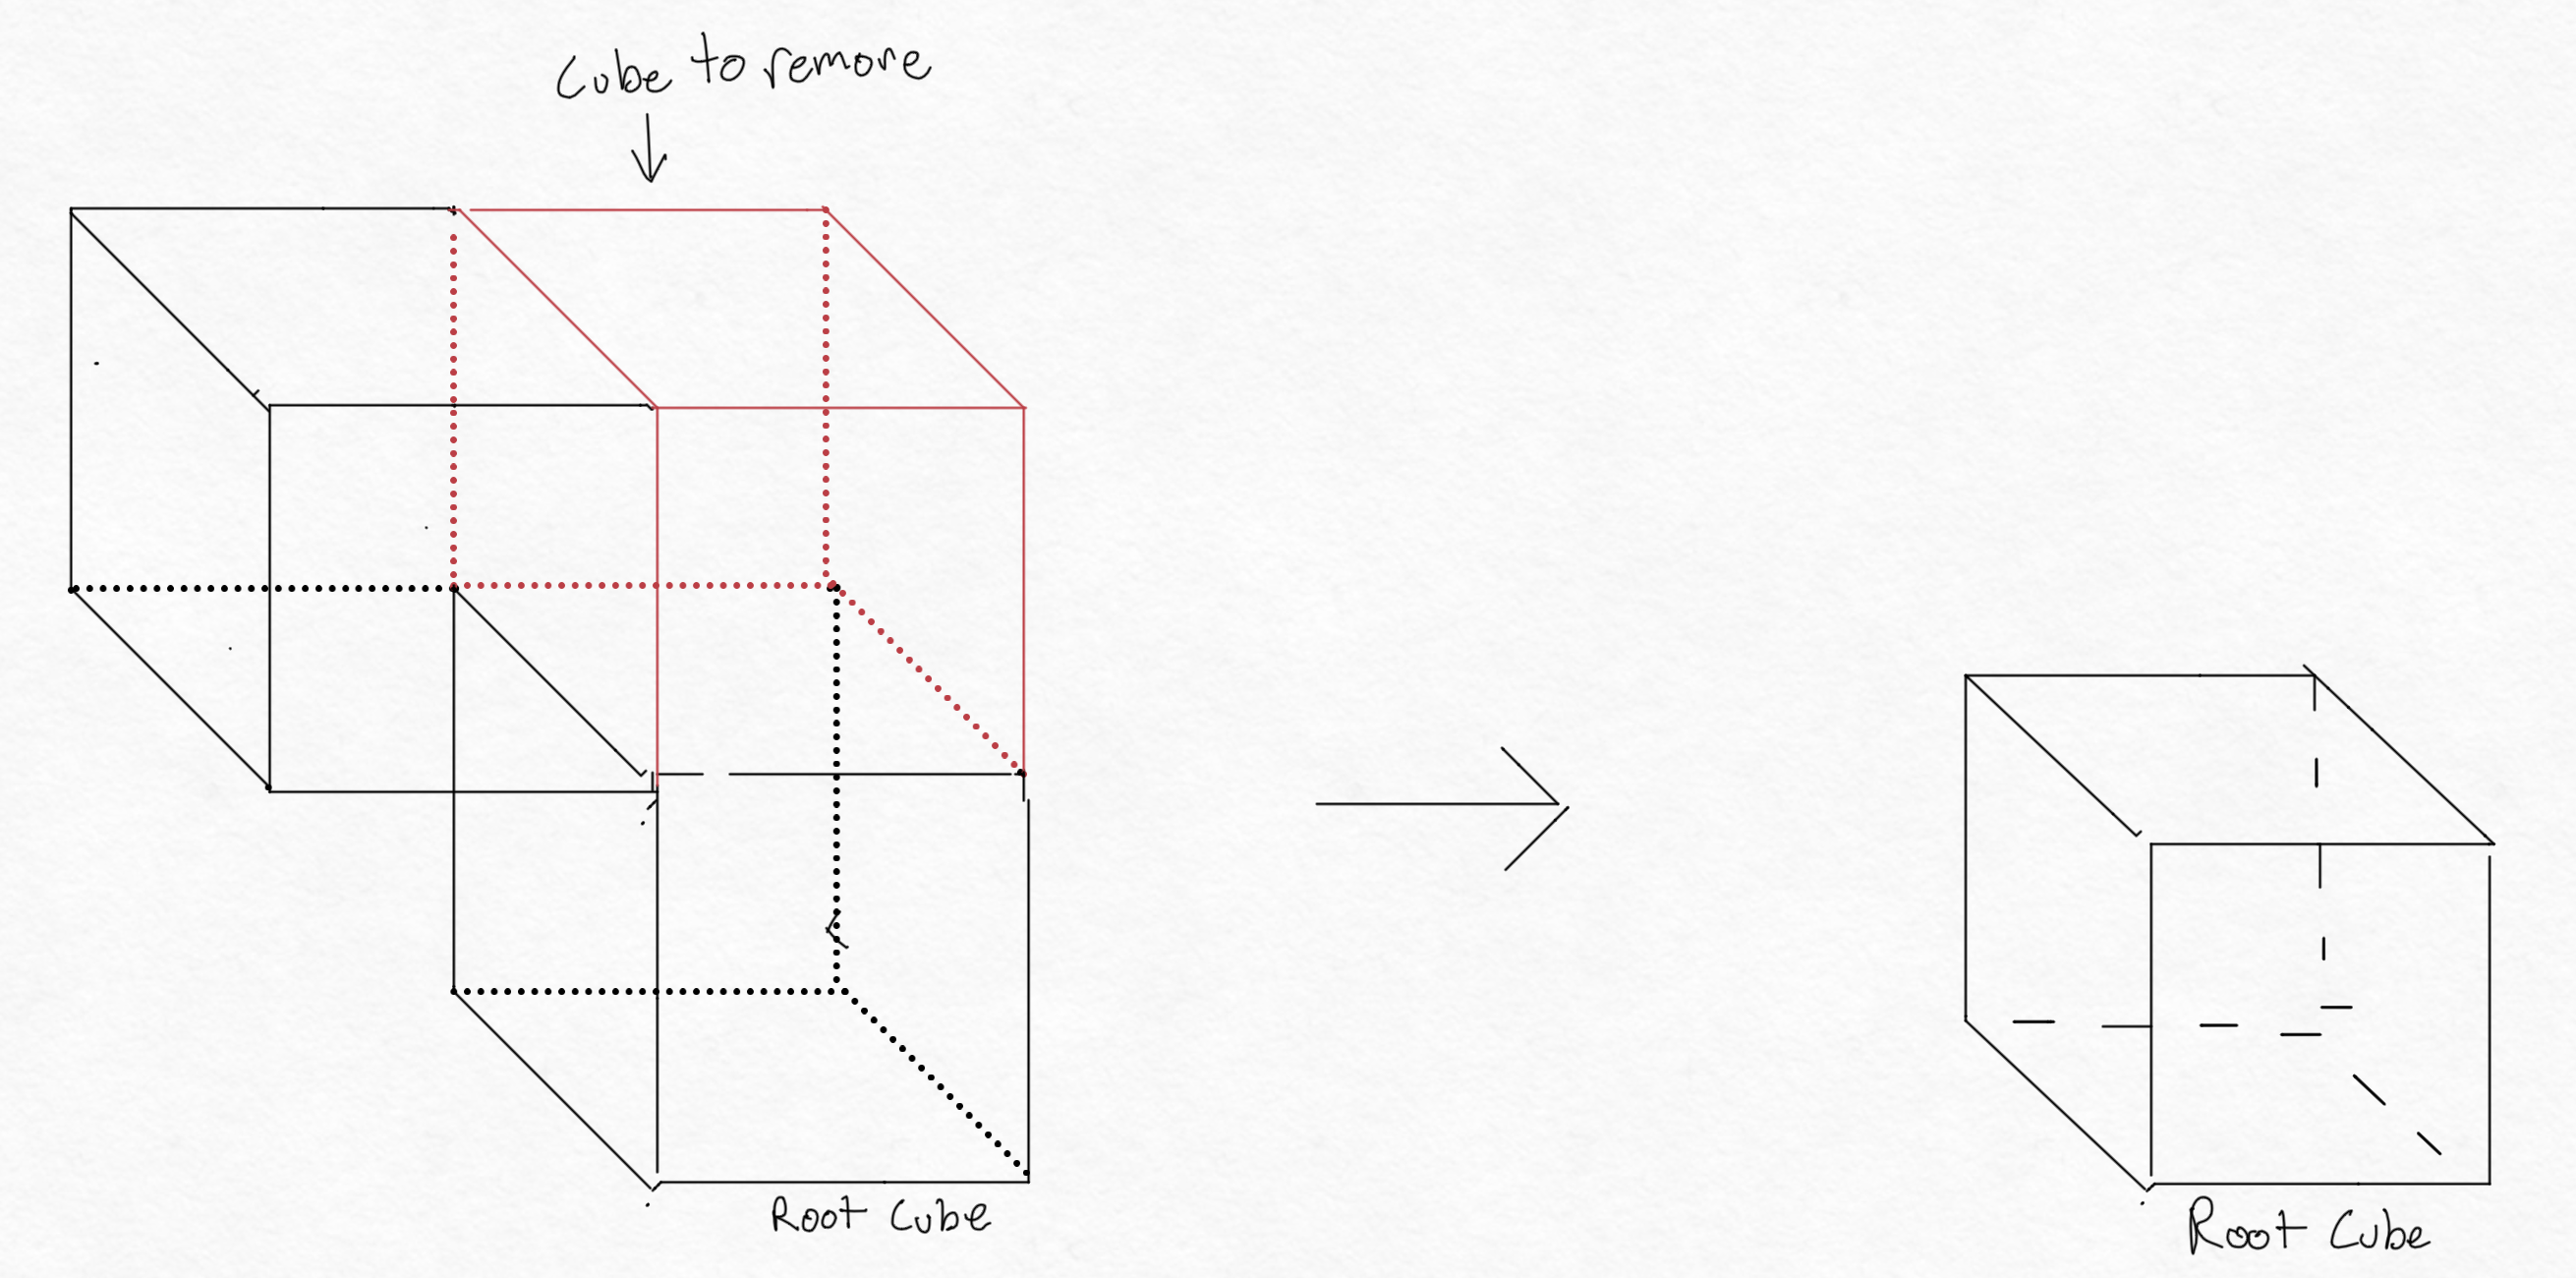 Cube to remove
Root Cube
Root Cube